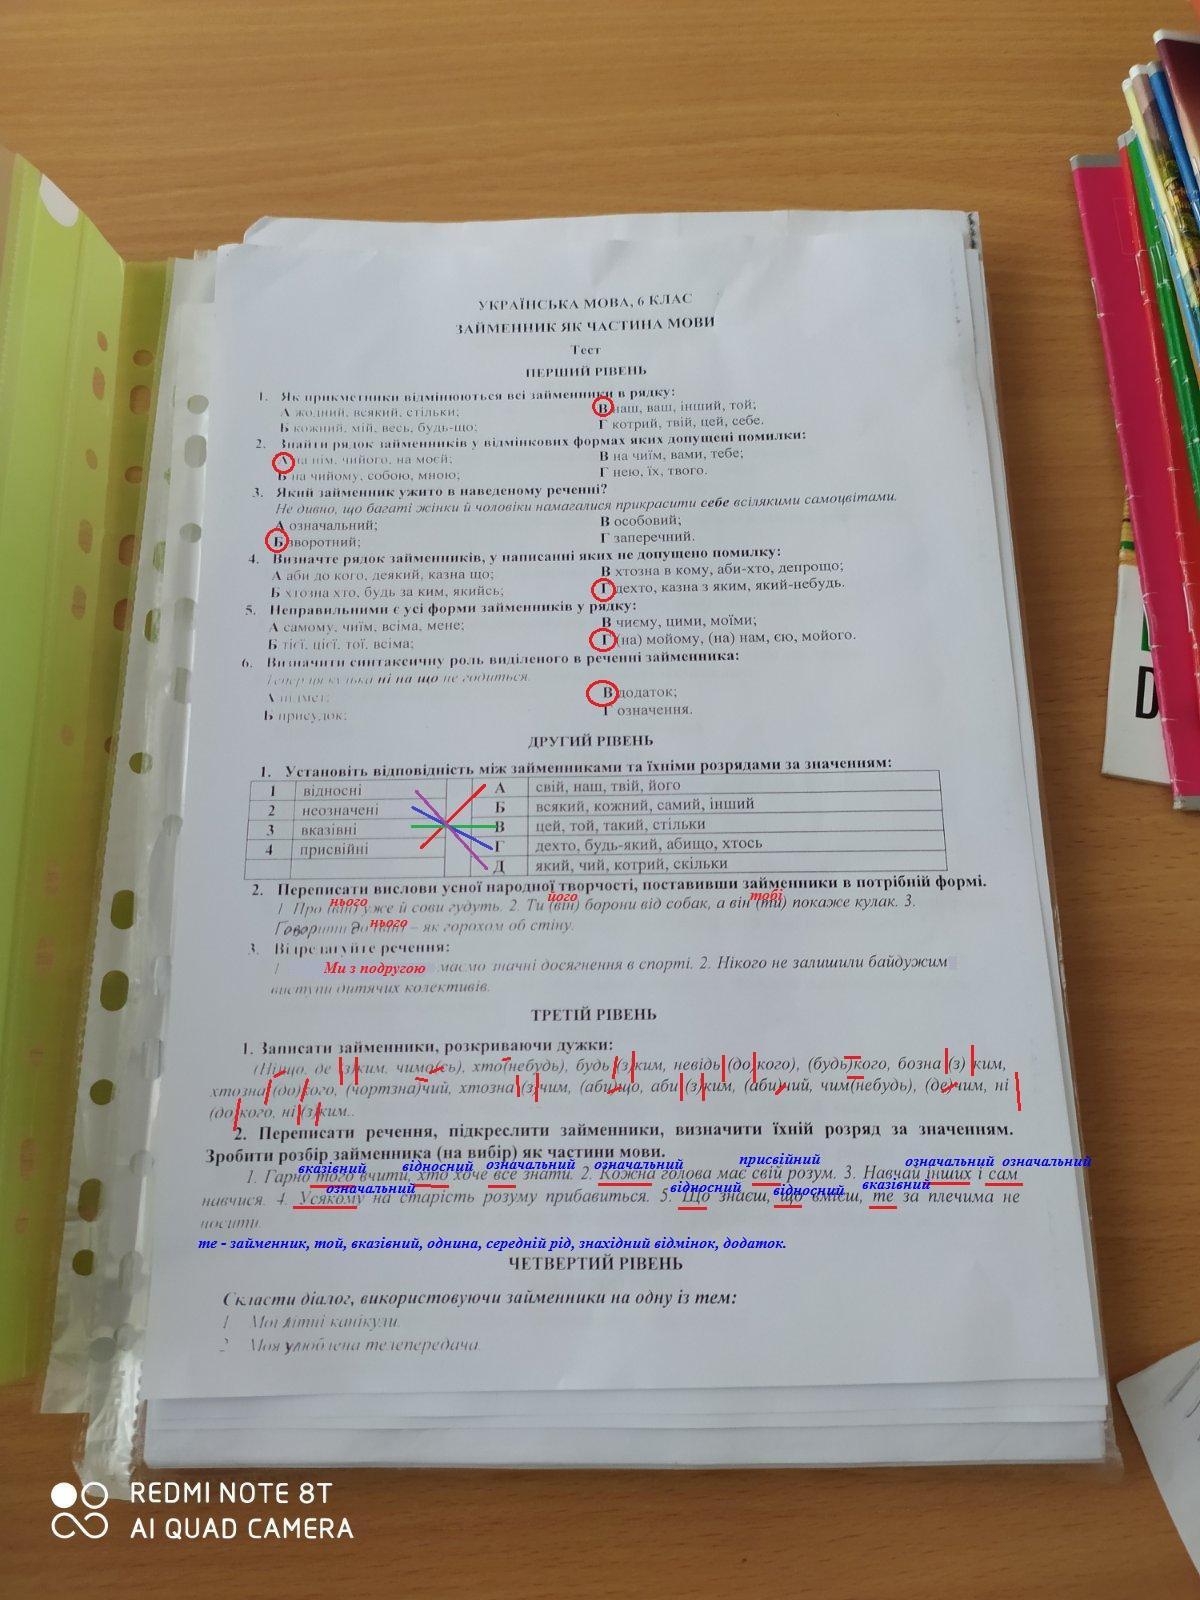 УКРАЇНСЬКА МОВА, 6 КЛАС
ЗАЙМЕННИК ЯК ЧАСТИНА МОВИ
Тест
ПЕРШИЙ РІВЕНЬ
1. Як прикметники відмінюються всі займенники в рядку:
А жодний, всякий, стільки; В наш, ваш, інший, той;
Б кожний, мій, весь, будь-що; Г котрий, твій, цей, себе.
2. Знайти рядок займенників у відмінкових формах яких допущені помилки:
А на нім, чийого, на моєй; В на чиїм, вами, тебе;
Б на чийому, собою, мною; Г нею, їх, твого.
3. Який займенник ужито в наведеному реченні?
Не дивно, що багаті жінки й чоловіки намагалися прикрасити себе всілякими самоцвітами.
А означальний; В особовий;
Б зворотний; Г заперечний.
4. Визначте рядок займенників, у написанні яких не допущено помилку:
А аби до кого, деякий, казна що; В хтозна в кому, аби-хто, депрощо;
Б хтозна хто, будь за ким, якийсь; Г дехто, казна з яким, який-небудь.
5. Неправильними є усі форми займенників у рядку:
А самому, чиїм, всіма, мене; В чиєму, цими, моїми;
Б тієї, цієї, тої, всіма; Г (на) мойому, (на) нам, єю, мойого.
6. Визначити синтаксичну роль виділеного в реченні займенника:
Тепер ця кулька ні на що не годиться.
А підмет; В додаток;
Б присудок; Г означення.
ДРУГИЙ РІВЕНЬ
1. Установіть відповідність між займенниками та їхніми розрядами за значенням:
1 відносні А свій, наш, твій, його
2 неозначені Б всякий, кожний, самий, інший
3 вказівні В цей, той, такий, стільки
4 присвійні Г дехто, будь-який, абищо, хтось
Д який, чий, котрий, скільки
2. Переписати вислови усної народної творчості, поставивши займенники в потрібній формі.
нього його тобі
1. Про (він) уже й сови гудуть. 2. Ти (він) борони від собак, а він (ти) покаже кулак. 3.
нього
Говорити до (він) – як горохом об стіну.
3. Відредагуйте речення:
1 Ми з подругою маємо значні досягнення в спорті. 2. Нікого не залишили байдужим
виступи дитячих колективів.
ТРЕТІЙ РІВЕНЬ
1. Записати займенники, розкриваючи дужки:
(Ні)що, де (з)ким, чимо(сь), хто(небудь), будь (з)ким, невідь (до)кого), (будь)кого, бозна (з) ким,
хтозна (до)кого, (чортзна)чий, хтозна (з)чим, (аби)що, аби (з)ким, (аби)чий, чим(небудь), (де)чим, ні
(до)кого, ні (з)ким..
2. Переписати речення, підкреслити займенники, визначити їхній розряд за значенням.
Зробити розбір займенника (на вибір) як частини мови.
вказівний відносний означальний означальний присвійний означальний означальний
1. Гарно того вчити, хто хоче все знати. 2. Кожна голова має свій розум. 3. Навчай інших і сам
означальний відносний відносний вказівний
навчися. 4. Усякому на старість розуму прибавиться. 5. Що знаєш, що вмієш, те за плечима не
носити.
те - займенник, той, вказівний, однина, середній рід, знахідний відмінок, додаток.
ЧЕТВЕРТИЙ РІВЕНЬ
Скласти діалог, використовуючи займенники на одну із тем:
1 Мої літні канікули.
2 Моя улюблена телепередача.
D
REDMI NOTE 8T
AI QUAD CAMERA